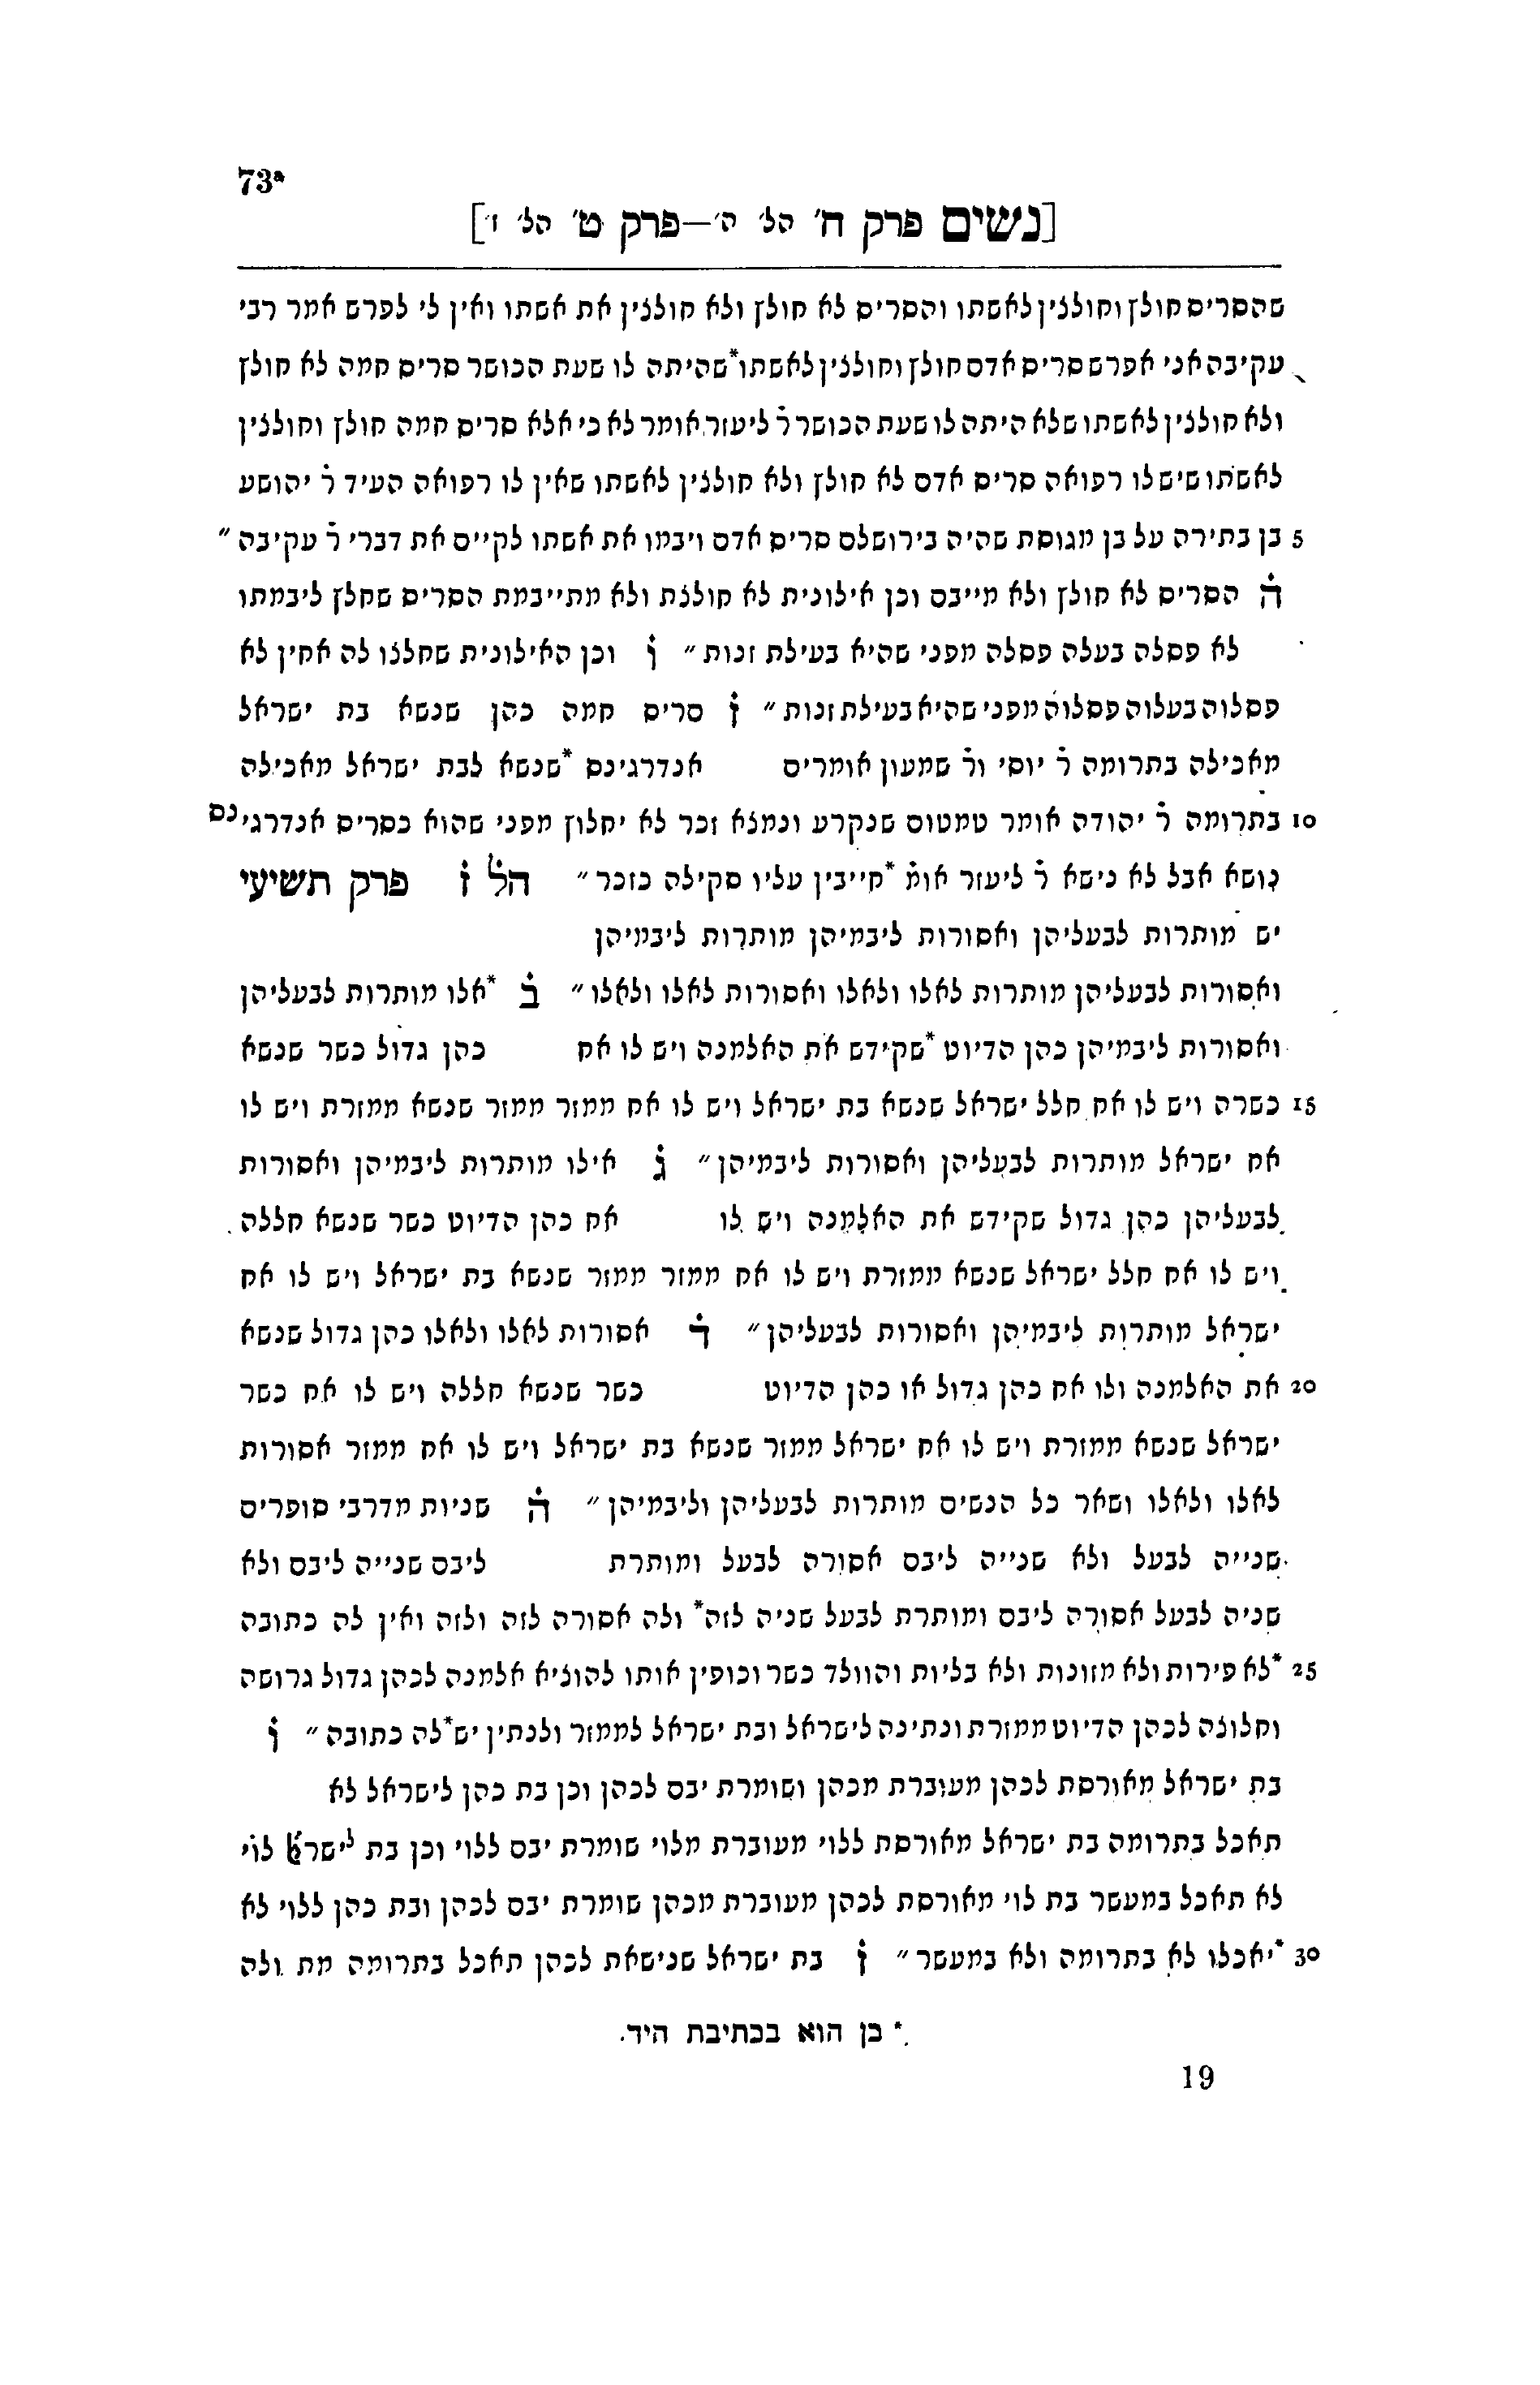 73*
[נשים פרק ח' הל' ה'—פרק ט' הל' ז']
שהסריס חולץ וחולצין לאשתו והסריס לא חולץ ולא חולצין את אשתו ואין לי לפרש אמר רבי
עקיבה אני אפרש סריס אדם חולץ וחולצין לאשתו *שהיתה לו שעת הכושר סריס חמה לא חולץ
ולא חולצין לאשתו שלא היתה לו שעת הכושר ר̇ ליעזר אומר לא כי אלא סריס חמה חולץ וחולצין
לאשתו שיש לו רפואה סריס אדם לא חולץ ולא חולצין לאשתו שאין לו רפואה העיד ר̇ יהושע
5 בן בתירה על בן מגוסת שהיה בירושלם סריס אדם ויבמו את אשתו לקיים את דברי ר̇ עקיבה ״
ה̇ הסריס לא חולץ ולא מייבם וכן אילונית לא חולצת ולא מתייבמת הסריס שחלץ ליבמתו
לא פסלה בעלה פסלה מפני שהיא בעילת זנות ״ ו̇ וכן האילונית שחלצו לה אחין לא
פסלוה בעלוה פסלוה מפני שהיא בעילת זנות ״ ז̇ סריס חמה כהן שנשא בת ישראל
מאכילה בתרומה ר̇ יוסי ור̇ שמעון אומרים אנדרגינס *שנשא לבת ישראל מאכילה
10 בתרומה ר̇ יהודה אומר טמטום שנקרע ונמצא זכר לא יחלוץ מפני שהוא כסריס אנדרגינס
נושא אבל לא נישא ר̇ ליעזר אומ̇ *חייבין עליו סקילה כזכר ״ הל̇ ז̇ פרק תשיעי
יש מותרות לבעליהן ואסורות ליבמיהן מותרות ליבמיהן
ואסורות לבעליהן מותרות לאלו ולאלו ואסורות לאלו ולאלו ״ ב̇ *אלו מותרות לבעליהן
ואסורות ליבמיהן כהן הדיוט *שקידש את האלמנה ויש לו אח כהן גדול כשר שנשא
15 כשרה ויש לו אח חלל ישראל שנשא בת ישראל ויש לו אח ממזר ממזר שנשא ממזרת ויש לו
אח ישראל מותרות לבעליהן ואסורות ליבמיהן ״ ג̇ אילו מותרות ליבמיהן ואסורות
לבעליהן כהן גדול שקידש את האלמנה ויש לו אח כהן הדיוט כשר שנשא חללה
ויש לו אח חלל ישראל שנשא ממזרת ויש לו אח ממזר ממזר שנשא בת ישראל ויש לו אח
ישראל מותרות ליבמיהן ואסורות לבעליהן ״ ד̇ אסורות לאלו ולאלו כהן גדול שנשא
20 את האלמנה ולו אח כהן גדול או כהן הדיוט כשר שנשא חללה ויש לו אח כשר
ישראל שנשא ממזרת ויש לו אח ישראל ממזר שנשא בת ישראל ויש לו אח ממזר אסורות
לאלו ולאלו ושאר כל הנשים מותרות לבעליהן וליבמיהן ״ ה̇ שניות מדרבי סופרים
שנייה לבעל ולא שנייה ליבם אסורה לבעל ומותרת ליבם שנייה ליבם ולא
שניה לבעל אסורה ליבם ומותרת לבעל שניה לזה *ולה אסורה לזה ולזה ואין לה כתובה
25 *לא פירות ולא מזונות ולא בליות והוולד כשר וכופין אותו להוציא אלמנה לכהן גדול גרושה
וחלוצה לכהן הדיוט ממזרת ונתינה לישראל ובת ישראל לממזר ולנתין יש *לה כתובה ״ ו̇
בת ישראל מאורסת לכהן מעוברת מכהן ושומרת יבם לכהן וכן בת כהן לישראל לא
תאכל בתרומה בת ישראל מאורסת ללוי מעוברת מלוי שומרת יבם ללוי וכן בת לישראל לוי
לא תאכל במעשר בת לוי מאורסת לכהן מעוברת מכהן שומרת יבם לכהן ובת כהן ללוי לא
30 *יאכלו לא בתרומה ולא במעשר ״ ז̇ בת ישראל שנישאת לכהן תאכל בתרומה מת ולה
* כן הוא בכתיבת היד.
19